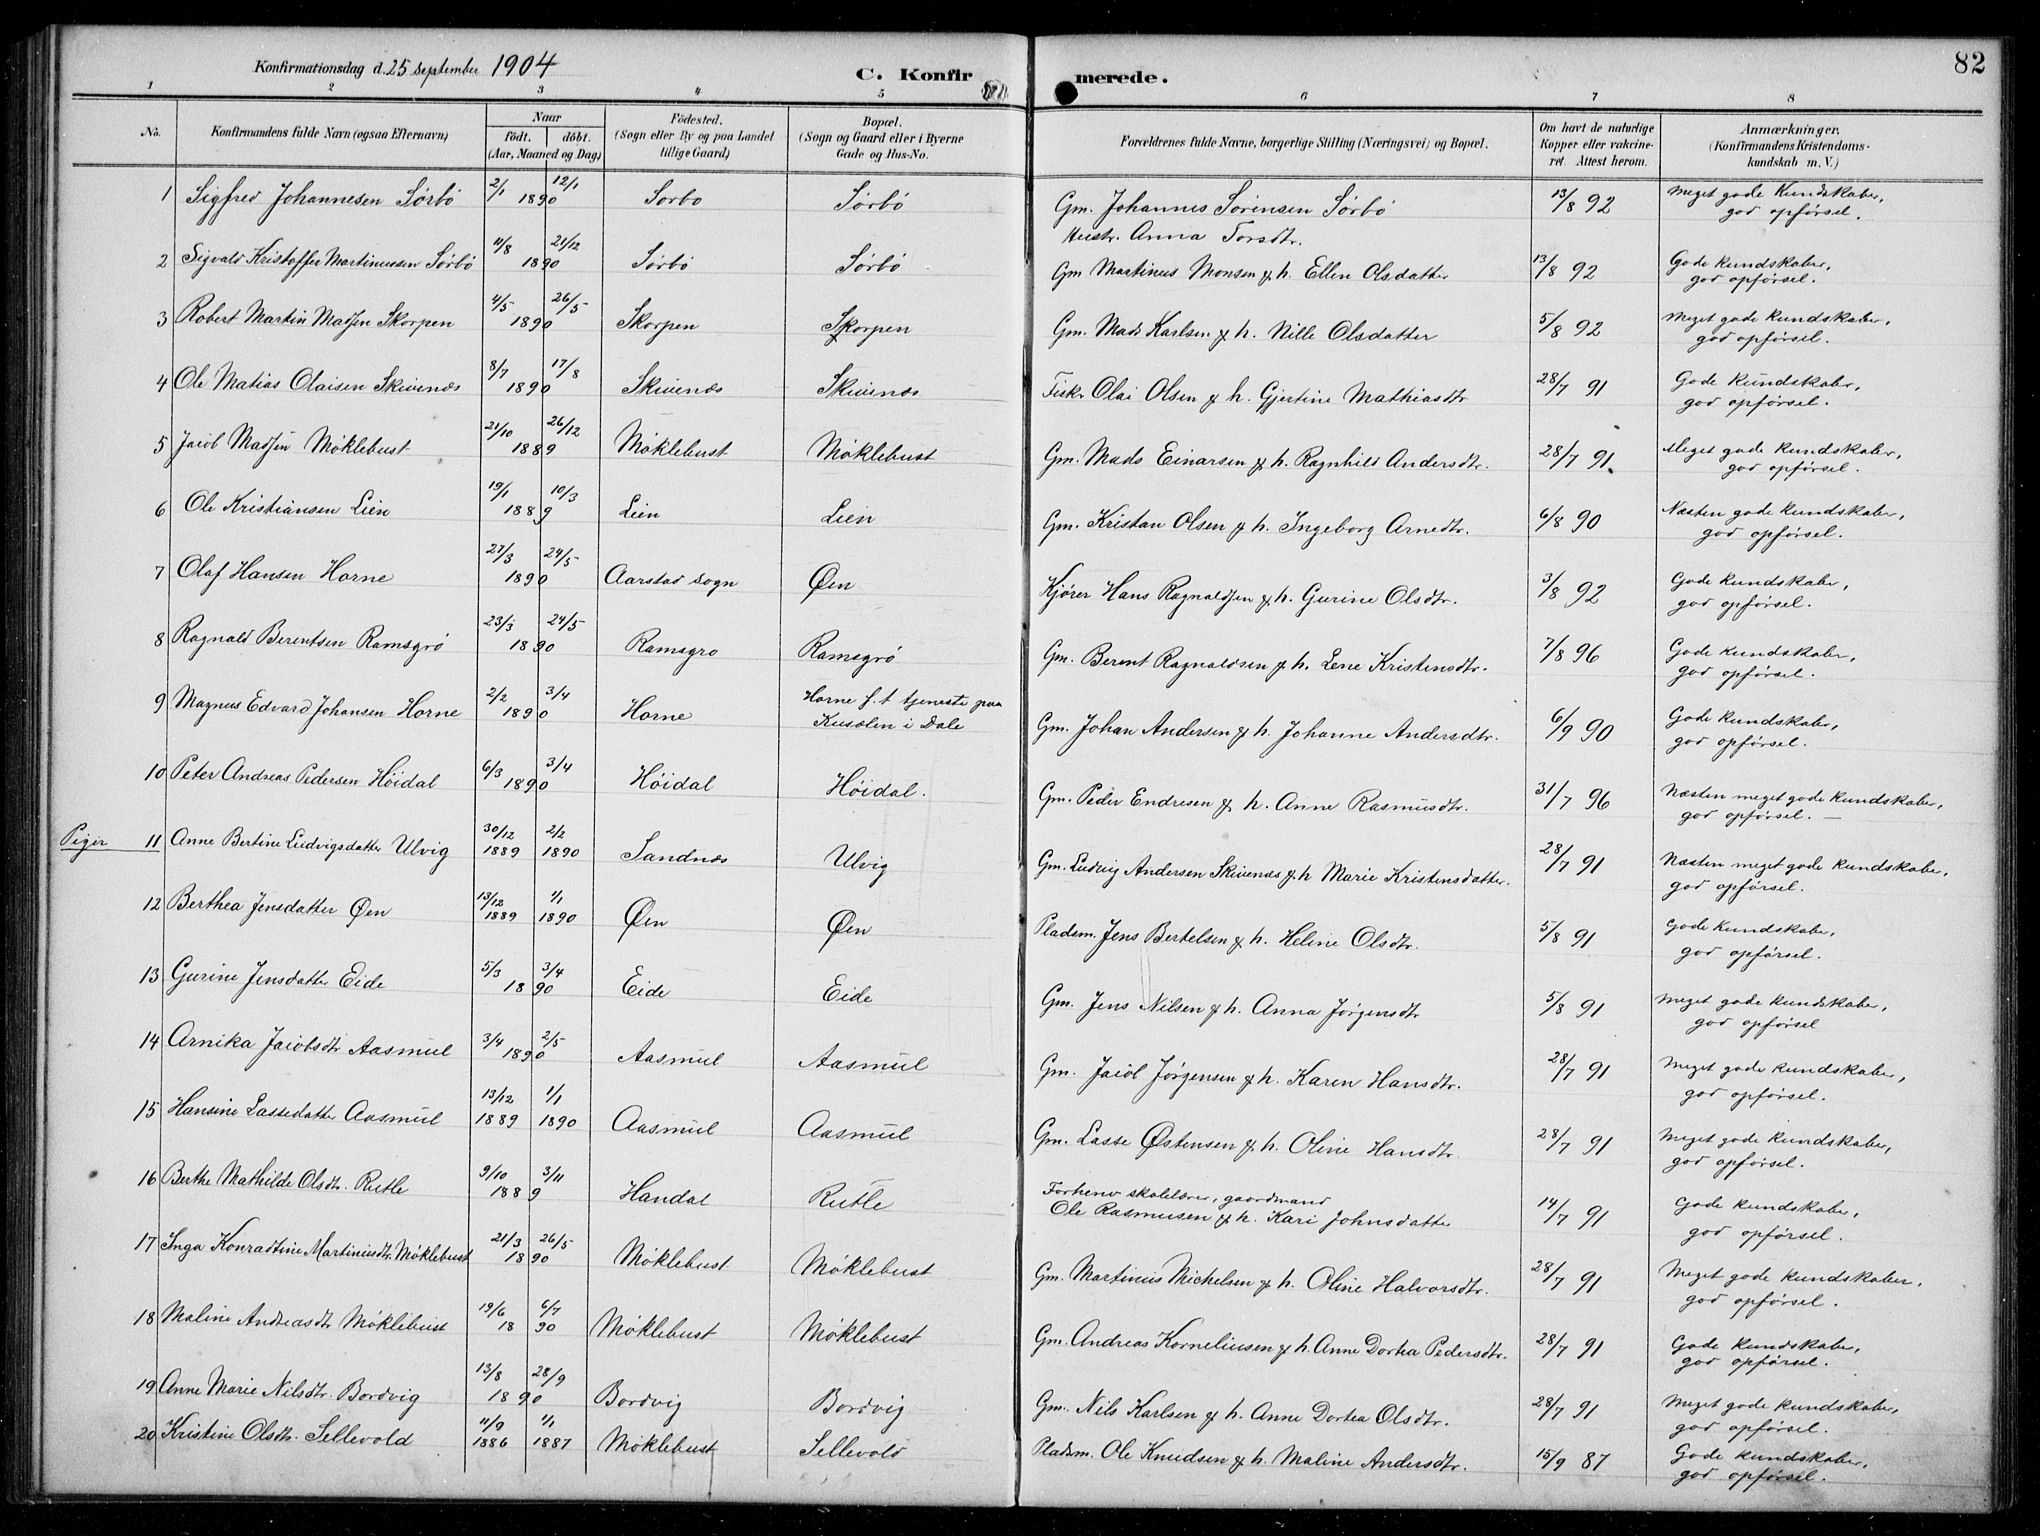 Konfirmationsdag d. 25 September 1904
C. Konfirmerede.
82
1 2 3 4 5 6 7 8
No. Konfirmandens fulde Navn (ogsaa Efternavn) Naar født. døbt. (Aar, Maaned og Dag) Fødested. (Sogn eller By og paa Landet tillige Gaard) Bopæl. (Sogn og Gaard eller i Byerne Gade og Hus-No. Forældrenes fulde Navne, borgerlige Stilling (Næringsvei) og Bopæl. Om havt de naturlige Kopper eller vakcineret. Attest herom. Anmærkninger, (Konfirmandens Kristendomskundskab m. V.)
1 Sigfred Johannesen Sørbø 2/1 12/1 1890 Sørbø Sørbø Gm. Johannes Sørensen Sørbø Hustr. Anna Torsdtr. 13/8 92 Meget gode Kundskaber, god opførsel.
2 Sigvald Kristoffer Martinussen Sørbø 11/8 21/12 1890 Sørbø Sørbø Gm Martinus Monsen & h. Ellen Olsdatter 13/8 92 Gode Kundskaber, god opførsel.
3 Robert Martin Madsen Skorpen 4/5 26/5 1890 Skorpen Skorpen Gm. Mads Karlsen & h. Nille Olsdatter 5/8 92 Meget gode Kundskaber, god opførsel.
4 Ole Matias Olaisen Skivenæs 8/7 17/8 1890 Skivenæs Skivenæs Fisker Olai Olsen & h. Gjertine Mathiasdtr 28/7 91 Gode Kundskaber, god opførsel.
5 Jacob Madsen Møklebust 21/10 26/12 1889 Møklebust Møklebust Gm. Mads Einarsen & h. Ragnhild Andersdtr. 28/7 91 Meget gode kundskaber, god opførsel.
6 Ole Kristiansen Lien 19/1 10/3 1889 Lien Lien Gm. Kristan Olsen & h. Ingeborg Arnedtr. 6/8 90 Næsten gode kundskaber, god opførsel.
7 Olaf Hansen Horne 27/3 24/5 1890 Aarstad sogn Øen Kjører Hans Ragnaldsen & h. Gurine Olsdtr. 3/8 92 Gode kundskaber, god opførsel.
8 Ragnald Berentsen Ramsgrø 23/3 24/5 1890 Ramsgro Ramsgrø Gm. Berent Ragnaldsen & h. Lene Kristensdtr. 7/8 96 Gode kundskaber, god opførsel.
9 Magnus Edvard Johansen Horne 2/2 3/4 1890 Horne Horne f.t tjeneste paa i Dale Gm. Johan Andersen & h. Johanne Andersdtr. 6/9 90 Gode kundskaber, god opførsel.
10 Peter Andreas Pedersen Høidal 6/3 3/4 1890 Høidal Høidal. Gm. Peder Endresen & h. Anne Rasmusdtr. 31/7 96 Næsten meget gode kundskaber, god opførsel. —
Piger 11 Anne Bertine Ludvigsdatter Ulvig 30/12 1889 2/2 1890 Sandnæs Ulvig Gm. Ludvig Andersen Skivenæs & h Marie Kristensdatter. 28/7 91 Næsten meget gode kundskaber, god opførsel.
12 Berthea Jensdatter Øen 13/12 1889 1/1 1890 Øen Øen Pladsm. Jens Bertelsen & h. Heline Olsdtr. 5/8 91 Gode Kundskaber, god opførsel.
13 Gurine Jensdatter Eide 5/3 3/4 1890 Eide Eide Gm. Jens Nilsen & h. Anna Jørgensdtr 5/8 91 Meget gode kundskaber, god opførsel
14 Arnika Jacobsdtr Aasmul 3/4 2/5 1890 Aasmul Aasmul Gm. Jacob Jørgensen & h. Karen Hansdtr. 28/7 91 Meget gode kundskaber, god opførsel.
15 Hansine Lassedatter Aasmul 13/12 1889 1/1 1890 Aasmul Aasmul Gm. Lasse Østensen & h. Oline Hansdtr. 28/7 91 Meget gode kundskaber, god opførsel.
16 Berthe Mathilde Olsdtr. Rutle 9/10 3/11 1889 Handal Rutle Forhenv skolelærer, gaardmand Ole Rasmusen & h. Kari Johnsdatter 14/7 91 Gode kundskaber, god opførsel.
17 Inga Konradtine Martinusdtr. Møklebust 21/3 26/5 1890 Møklebust Møklebust Gm. Martinus Michelsen & h. Oline Halvorsdtr. 28/7 91 Meget gode kundskaber. god opførsel.
18 Maline Andreasdtr Møklebust 19/6 6/7 1890 Møklebust Møklebust Gm. Andreas Korneliusen & h. Anne Dortea Pedersdtr. 28/7 91 Gode kundskaber, god opførsel.
19 Anne Marie Nilsdtr. Bordvig 13/8 28/9 1890 Bordvig Bordvig Gm. Nils Karlsen & h. Anne Dortea Olsdtr. 28/7 91 Meget gode kundskaber, god opførsel.
20 Kristine Olsdtr. Sellevold 11/9 1886 1/1 1887 Møklebust Sellevold Pladsm. Ole Knudsen & h. Maline Andersdtr. 15/9 87 Gode kundskaber, god opførsel.